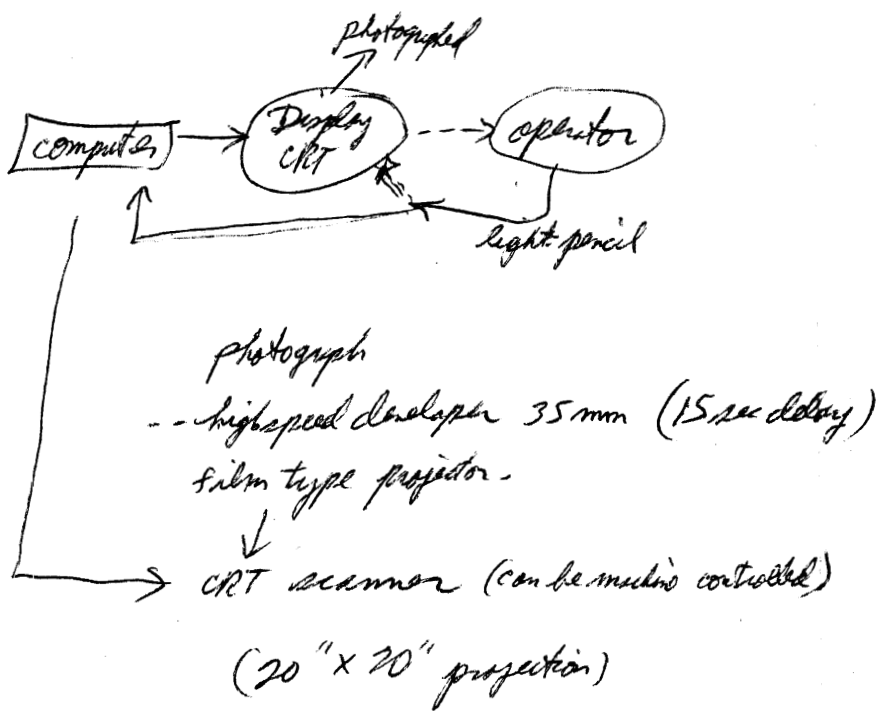 photographed
computer
Display
CRT
operator
light pencil
photograph
-- high speed developer 35 mm (15 sec delay)
film type projector.
CRT scanner (can be machine controlled)
(20" x 20" projection)